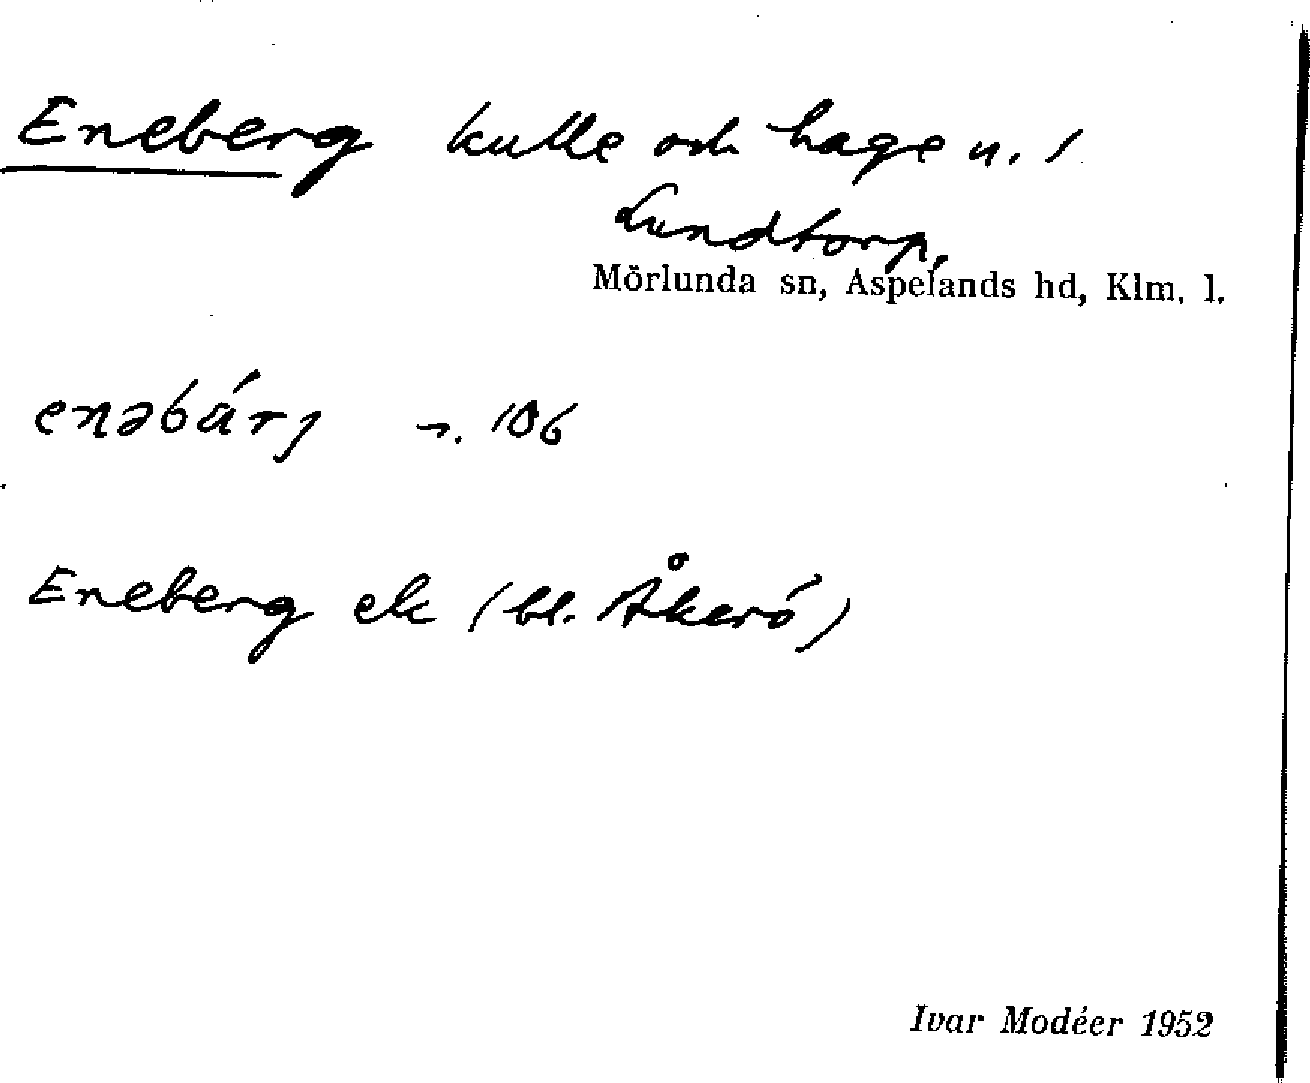 Eneberg kulle och hage n. 1
Lundtorp,
Mörlunda sn, Aspelands hd, Klm. l.
enəbá̈rj n. 106
Eneberg ek (bl. Åkerö)
Ivar Modéer 1952